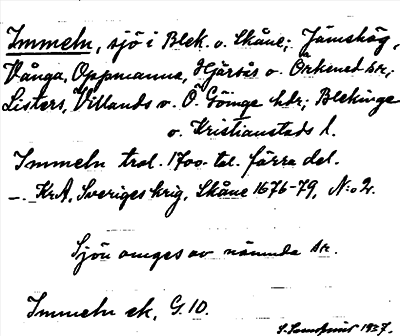 Immeln, sjö i Blek. o. Skåne; Jämshög,
Vånga, Oppmanna, Hjärsås o. Örkened sr;
Listers, Villands o. Ö. Göinge hdr; Blekinge
o. Kristianstads l.
Immeln trol. 1700-tal. förra del.
–. KrA, Sveriges krig, Skåne 1676-79, N:o 2.
Sjön omges av nämnda sr.
Immeln ek, G. 10.
1937.